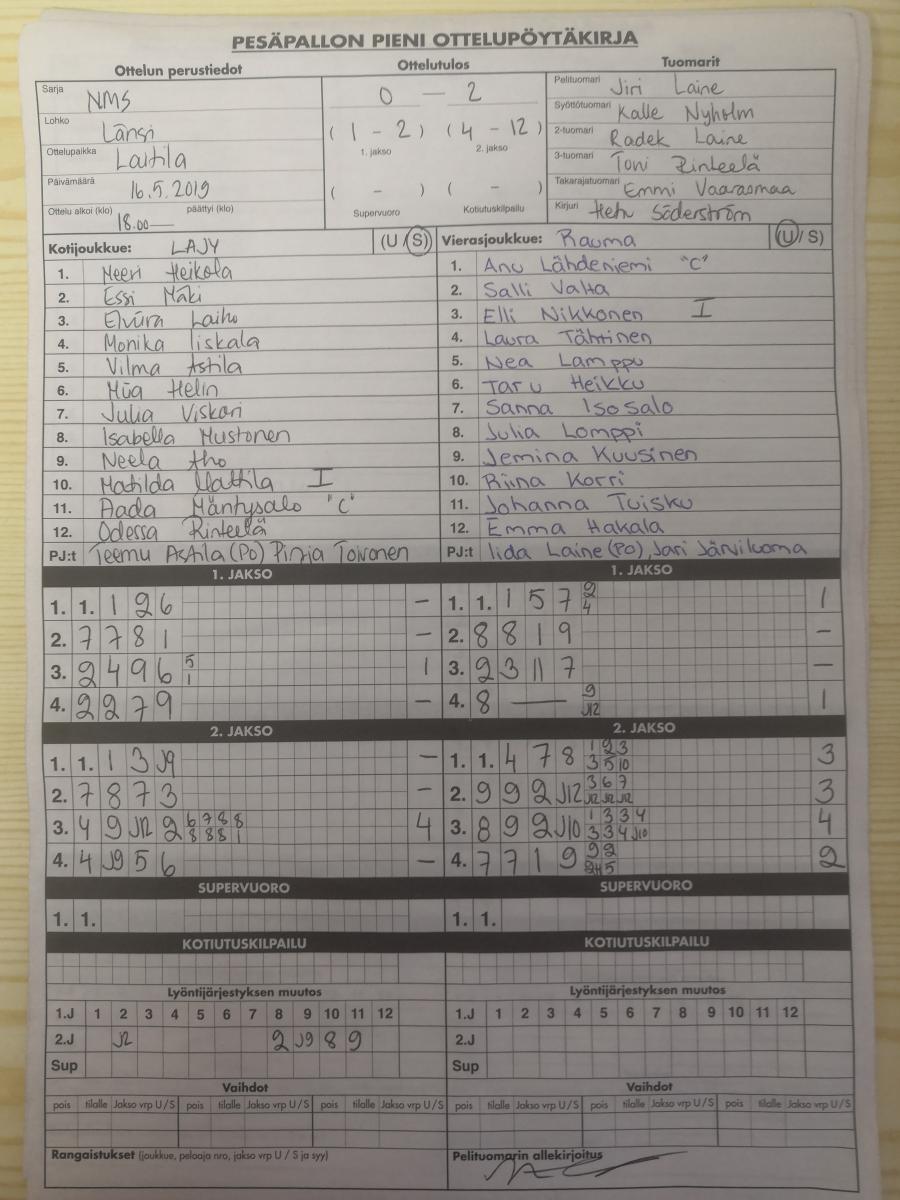 PESÄPALLON PIENI OTTELUPÖYTÄKIRJA
Ottelun perustiedot
Sarja NMS
Lohko Länsi
Ottelupaikka Laitila
Päivämäärä 16.5.2019
Ottelu alkoi (klo) 18.00— päättyi (klo)
Ottelutulos
0 — 2
(1 - 2) (4 - 12)
1. jakso 2. jakso
( - ) ( - )
Supervuoro Kotiutuskilpailu
Tuomarit
Pelituomari Jiri Laine
Syöttötuomari Kalle Nyholm
2-tuomari Radek Laine
3-tuomari Toni Rinteelä
Takarajatuomari Emmi Vaarasmaa
Kirjuri Hetu Söderström
Kotijoukkue: LAJY (U/S)
1. Meeri Heikola
2. Essi Mäki
3. Elviira Laiho
4. Monika Iiskala
5. Vilma Astila
6. Miia Helin
7. Julia Viskari
8. Isabella Mustonen
9. Neela Aho
10. Matilda Mattila I
11. Aada Mäntysalo "C"
12. Odessa Rinteelä
PJ:t Teemu Astila (PO) Pinja Toivonen
Vierasjoukkue: Rauma (U/S)
1. Anu Lähdeniemi "C"
2. Salli Valta
3. Elli Nikkonen I
4. Laura Tähtinen
5. Nea Lamppu
6. Taru Heikku
7. Sanna Isosalo
8. Julia Lomppi
9. Jemina Kuusinen
10. Riina Korri
11. Johanna Tuisku
12. Emma Hakala
PJ:t Iida Laine (PO), Jari Järviluoma
1. JAKSO
1. 1. 1 2 6 —
2. 7 7 8 1 —
3. 2 4 9 6 5 1 1
4. 2 2 7 9 —
1. JAKSO
1. 1. 1 5 7 2 4 1
2. 8 8 1 9 —
3. 2 3 11 7 —
4. 8 — 9 J12 1
2. JAKSO
1. 1. 1 3 J9 —
2. 7 8 7 3 —
3. 4 9 J12 2 6 7 8 8 4
8 8 8 1
4. 4 J9 5 6 —
2. JAKSO
1. 1. 4 7 8 1 2 3 3
3 5 10
2. 9 9 2 J12 3 6 7 3
J12 J2 J12
3. 8 9 2 J10 1 3 3 4 4
3 3 4 J10
4. 7 7 1 9 9 2 2
SUPERVUORO
1. 1.
SUPERVUORO
1. 1.
KOTIUTUSKILPAILU
KOTIUTUSKILPAILU
Lyöntijärjestyksen muutos
1.J 1 2 3 4 5 6 7 8 9 10 11 12
2.J J2 2 J9 8 9
Sup
Lyöntijärjestyksen muutos
1.J 1 2 3 4 5 6 7 8 9 10 11 12
2.J
Sup
Vaihdot
pois tilalle Jakso vrp U/S pois tilalle Jakso vrp U/S pois tilalle Jakso vrp U/S
Vaihdot
pois tilalle Jakso vrp U/S pois tilalle Jakso vrp U/S pois tilalle Jakso vrp U/S
Rangaistukset (joukkue, pelaaja nro, jakso vrp U / S ja syy)
Pelituomarin allekirjoitus